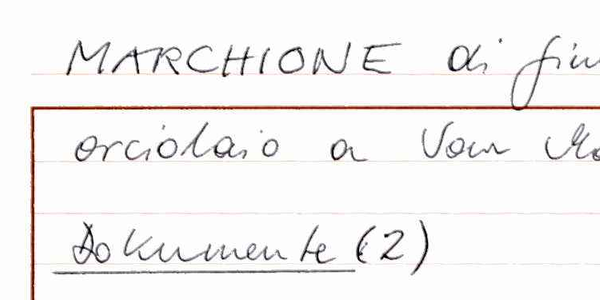 MARCHIONE di
orciolaio a
Dokumente (2)